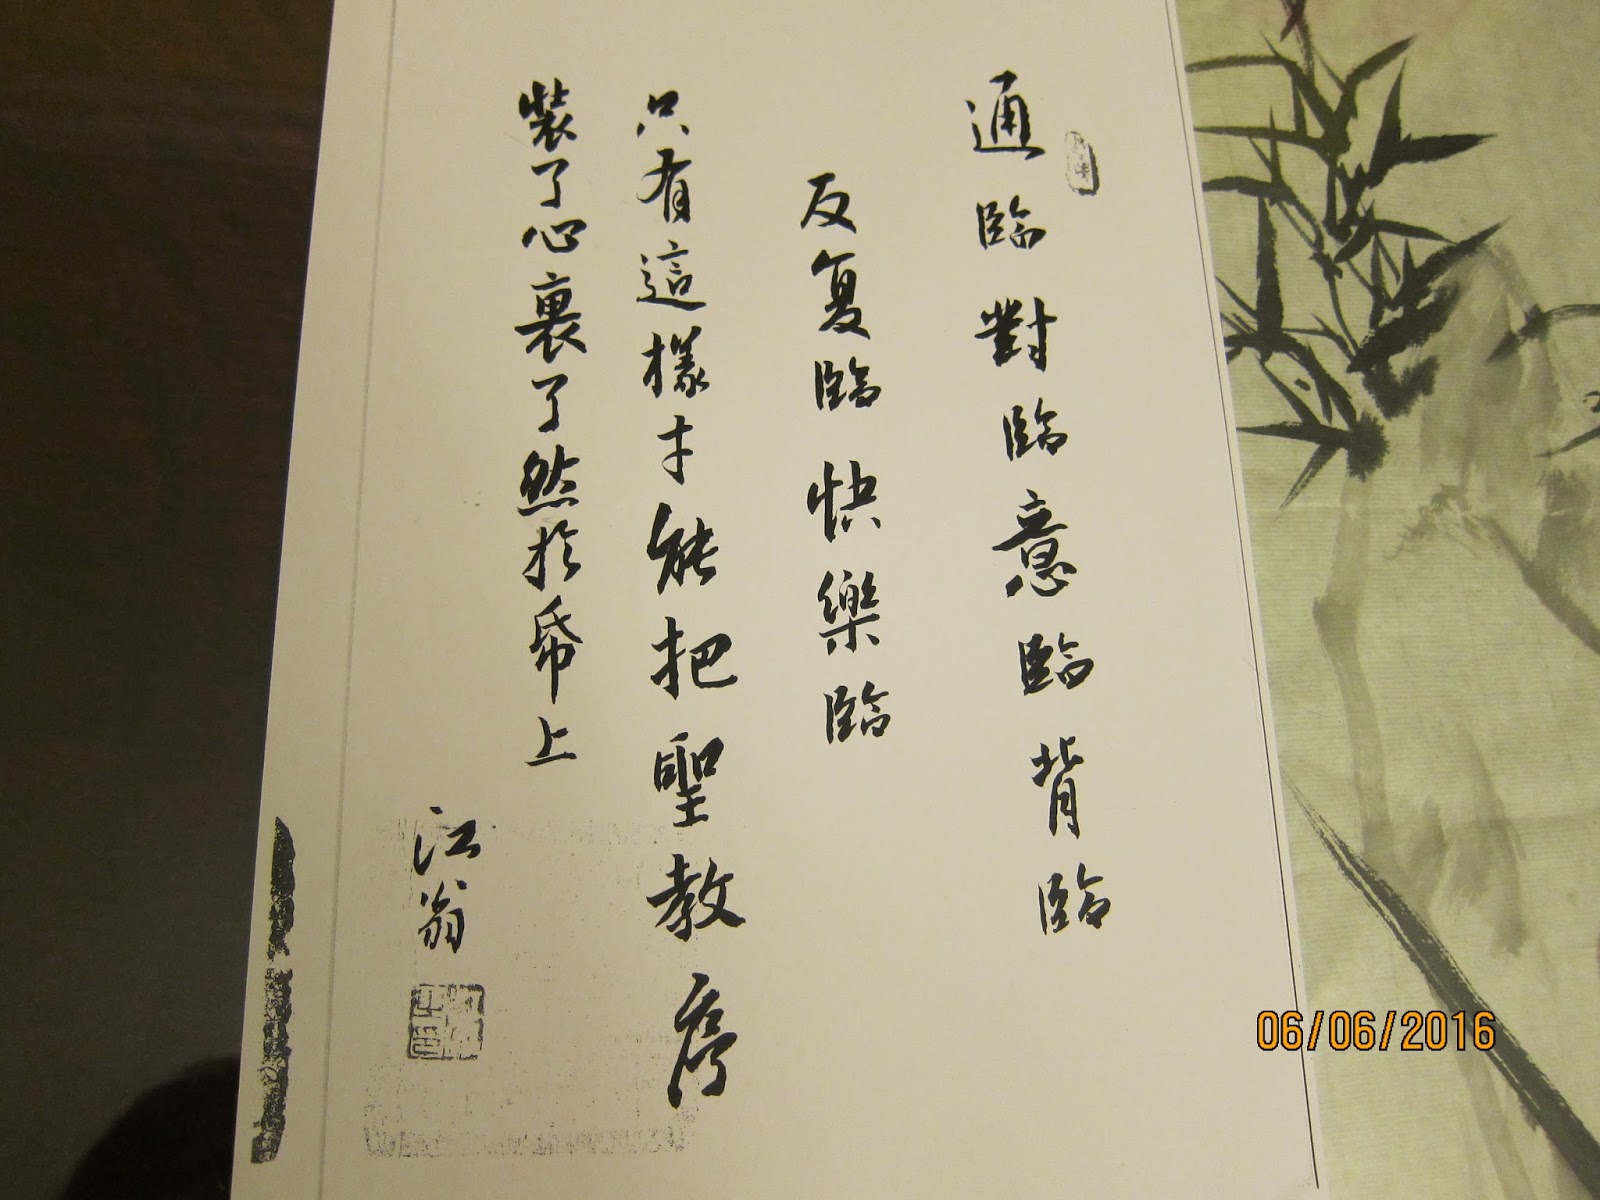 通臨對臨意臨背臨
反复臨快樂臨
只有這樣才能把聖教序
裝了心裏了然於帋上
江翁
06/06/2016